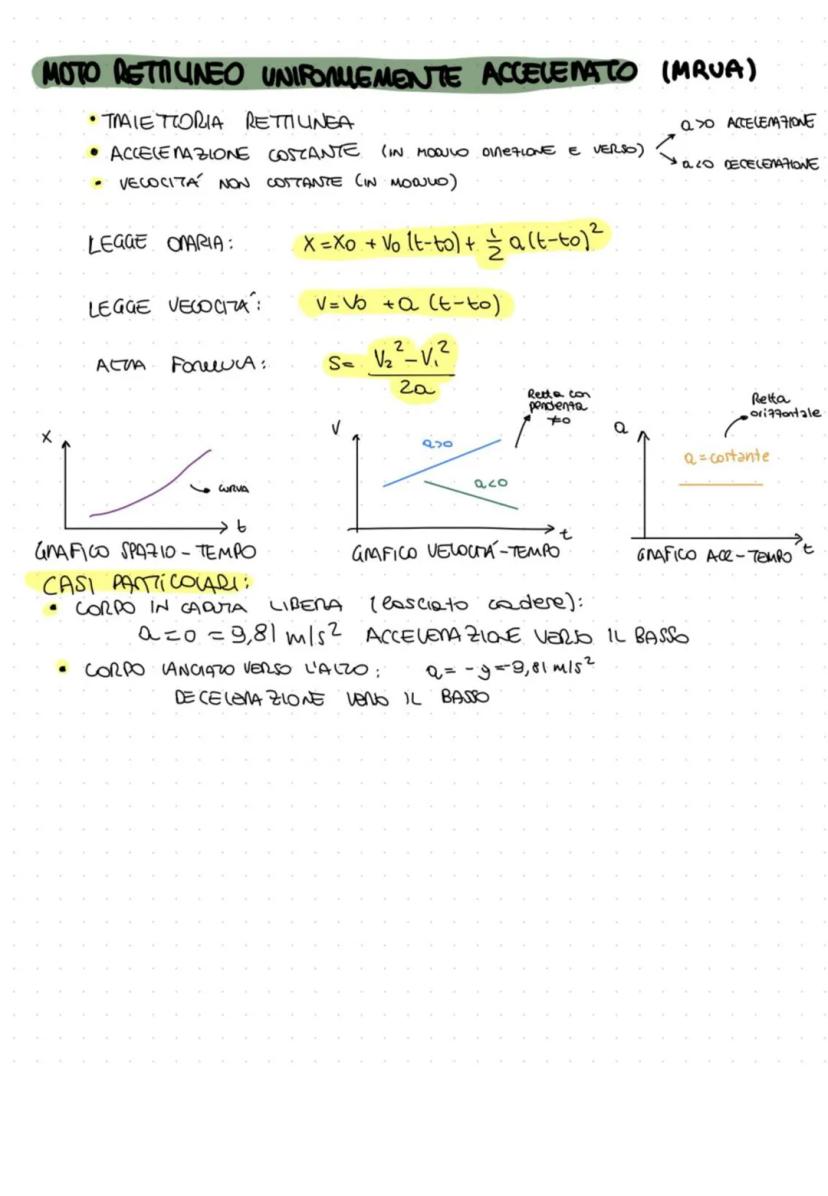 MOTO RETTILINEO UNIFORMEMENTE ACCELERATO (MRUA)
• TRAIETTORIA RETTILINEA
• ACCELERAZIONE COSTANTE (IN MODULO DIREZIONE E VERSO)
a>0 ACCELERAZIONE
a<0 DECELERAZIONE
• VELOCITÁ NON COSTANTE (IN MODULO)
LEGGE ORARIA: X = X0 + V0 (t-t0) + 1/2 a (t-t0)²
LEGGE VELOCITÁ: V = V0 + a (t-t0)
ALTRA FORMULA: S = (V₂² - V₁²) / 2a
X
CURVA
t
GRAFICO SPAZIO - TEMPO
V
a>0
a<0
Retta con
pendenza
≠0
t
GRAFICO VELOCITÁ - TEMPO
a
Retta
orizzontale
a = costante
t
GRAFICO ACC - TEMPO
CASI PARTICOLARI:
• CORPO IN CADUTA LIBERA (lasciato cadere):
a=0 = 9,81 m/s² ACCELERAZIONE VERSO IL BASSO
• CORPO LANCIATO VERSO L'ALTO: a = -g = -9,81 m/s²
DECELERAZIONE VERSO IL BASSO